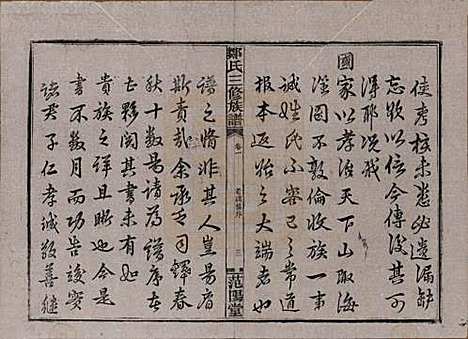 侯考核未悉必遺漏缺
忘欺以信今傳後其可
得耶況我
國
家以孝治天下山陬海
澨罔不敦倫收族一事
誠姓氏不容已之常道
報本返始之大端者也
鄒氏三修族譜
卷一
老譜序
三
范陽堂
譜之脩非其人豈易肩
斯責哉余承乏司鐸春
秋十數易諸為譜序者
亡夥閱其書未有
貴族之詳且晰也今是
書不數月而告竣實
諸君子仁孝誠敬善繼